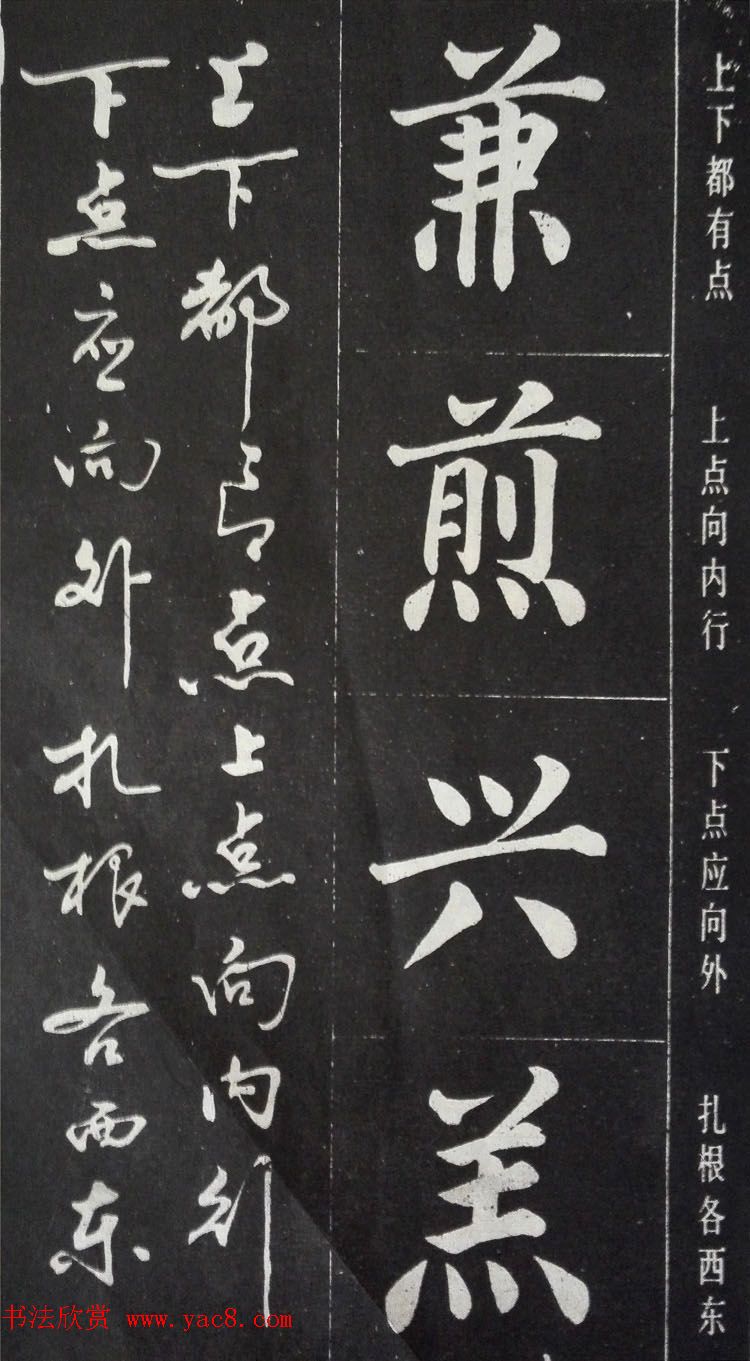 上下都有点 上点向内行 下点应向外 扎根各西东
兼
煎
兴
羔
上下都有点上点向内行
下点应向外扎根各西东
书法欣赏 www.yac8.com